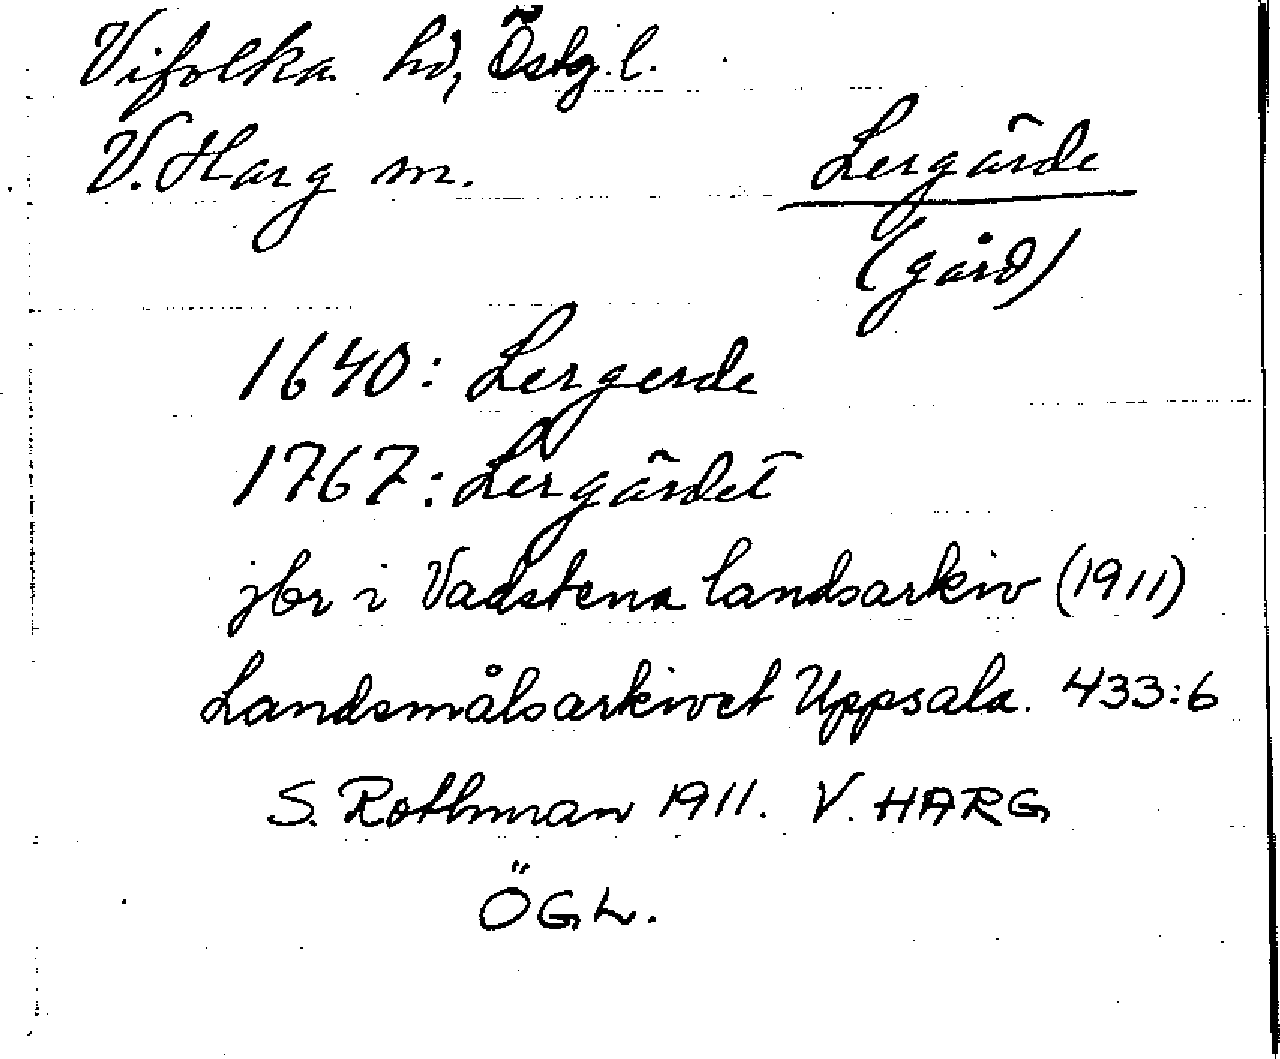 Vifolka hd, Östg. l.
V. Harg sn.
Lergärde
(gård)
1640: Lergerde
1767: Lergärdet
jbr i Vadstena landsarkiv (1911)
Landsmålsarkivet Uppsala. 433:6
S. Rothman 1911. V. HARG
ÖGL.